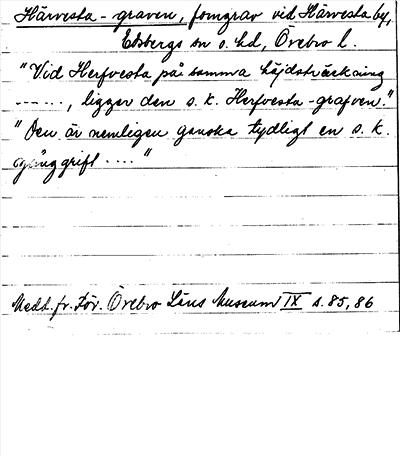 Härvesta - graven, forngrav vid Härvesta by,
Ekebergs sn o. hd, Örebro l.
"Vid Herfvesta på samma höjdsträckning
-----, ligger den s.k. Herfvesta-grafven."
"Den är nemligen ganska tydligt en s.k.
gånggrift ...."
Medd. fr. För. Örebro Läns Museum IX s. 85, 86